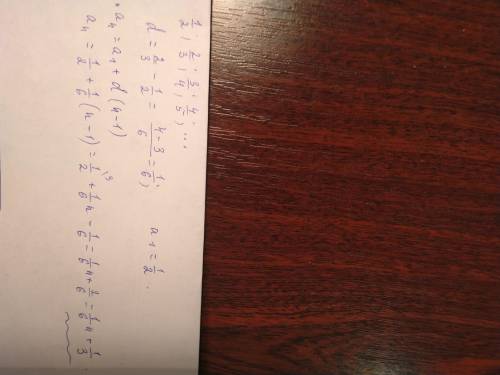 1/2; 2/3; 3/4; 4/5; ...
d = 2/3 - 1/2 = (4-3)/6 = 1/6; a₁ = 1/2.
aₙ = a₁ + d(n-1)
aₙ = 1/2 + 1/6(n-1) = 1/2 + 1/6n - 1/6 = 1/6n + 2/6 = 1/6n + 1/3.